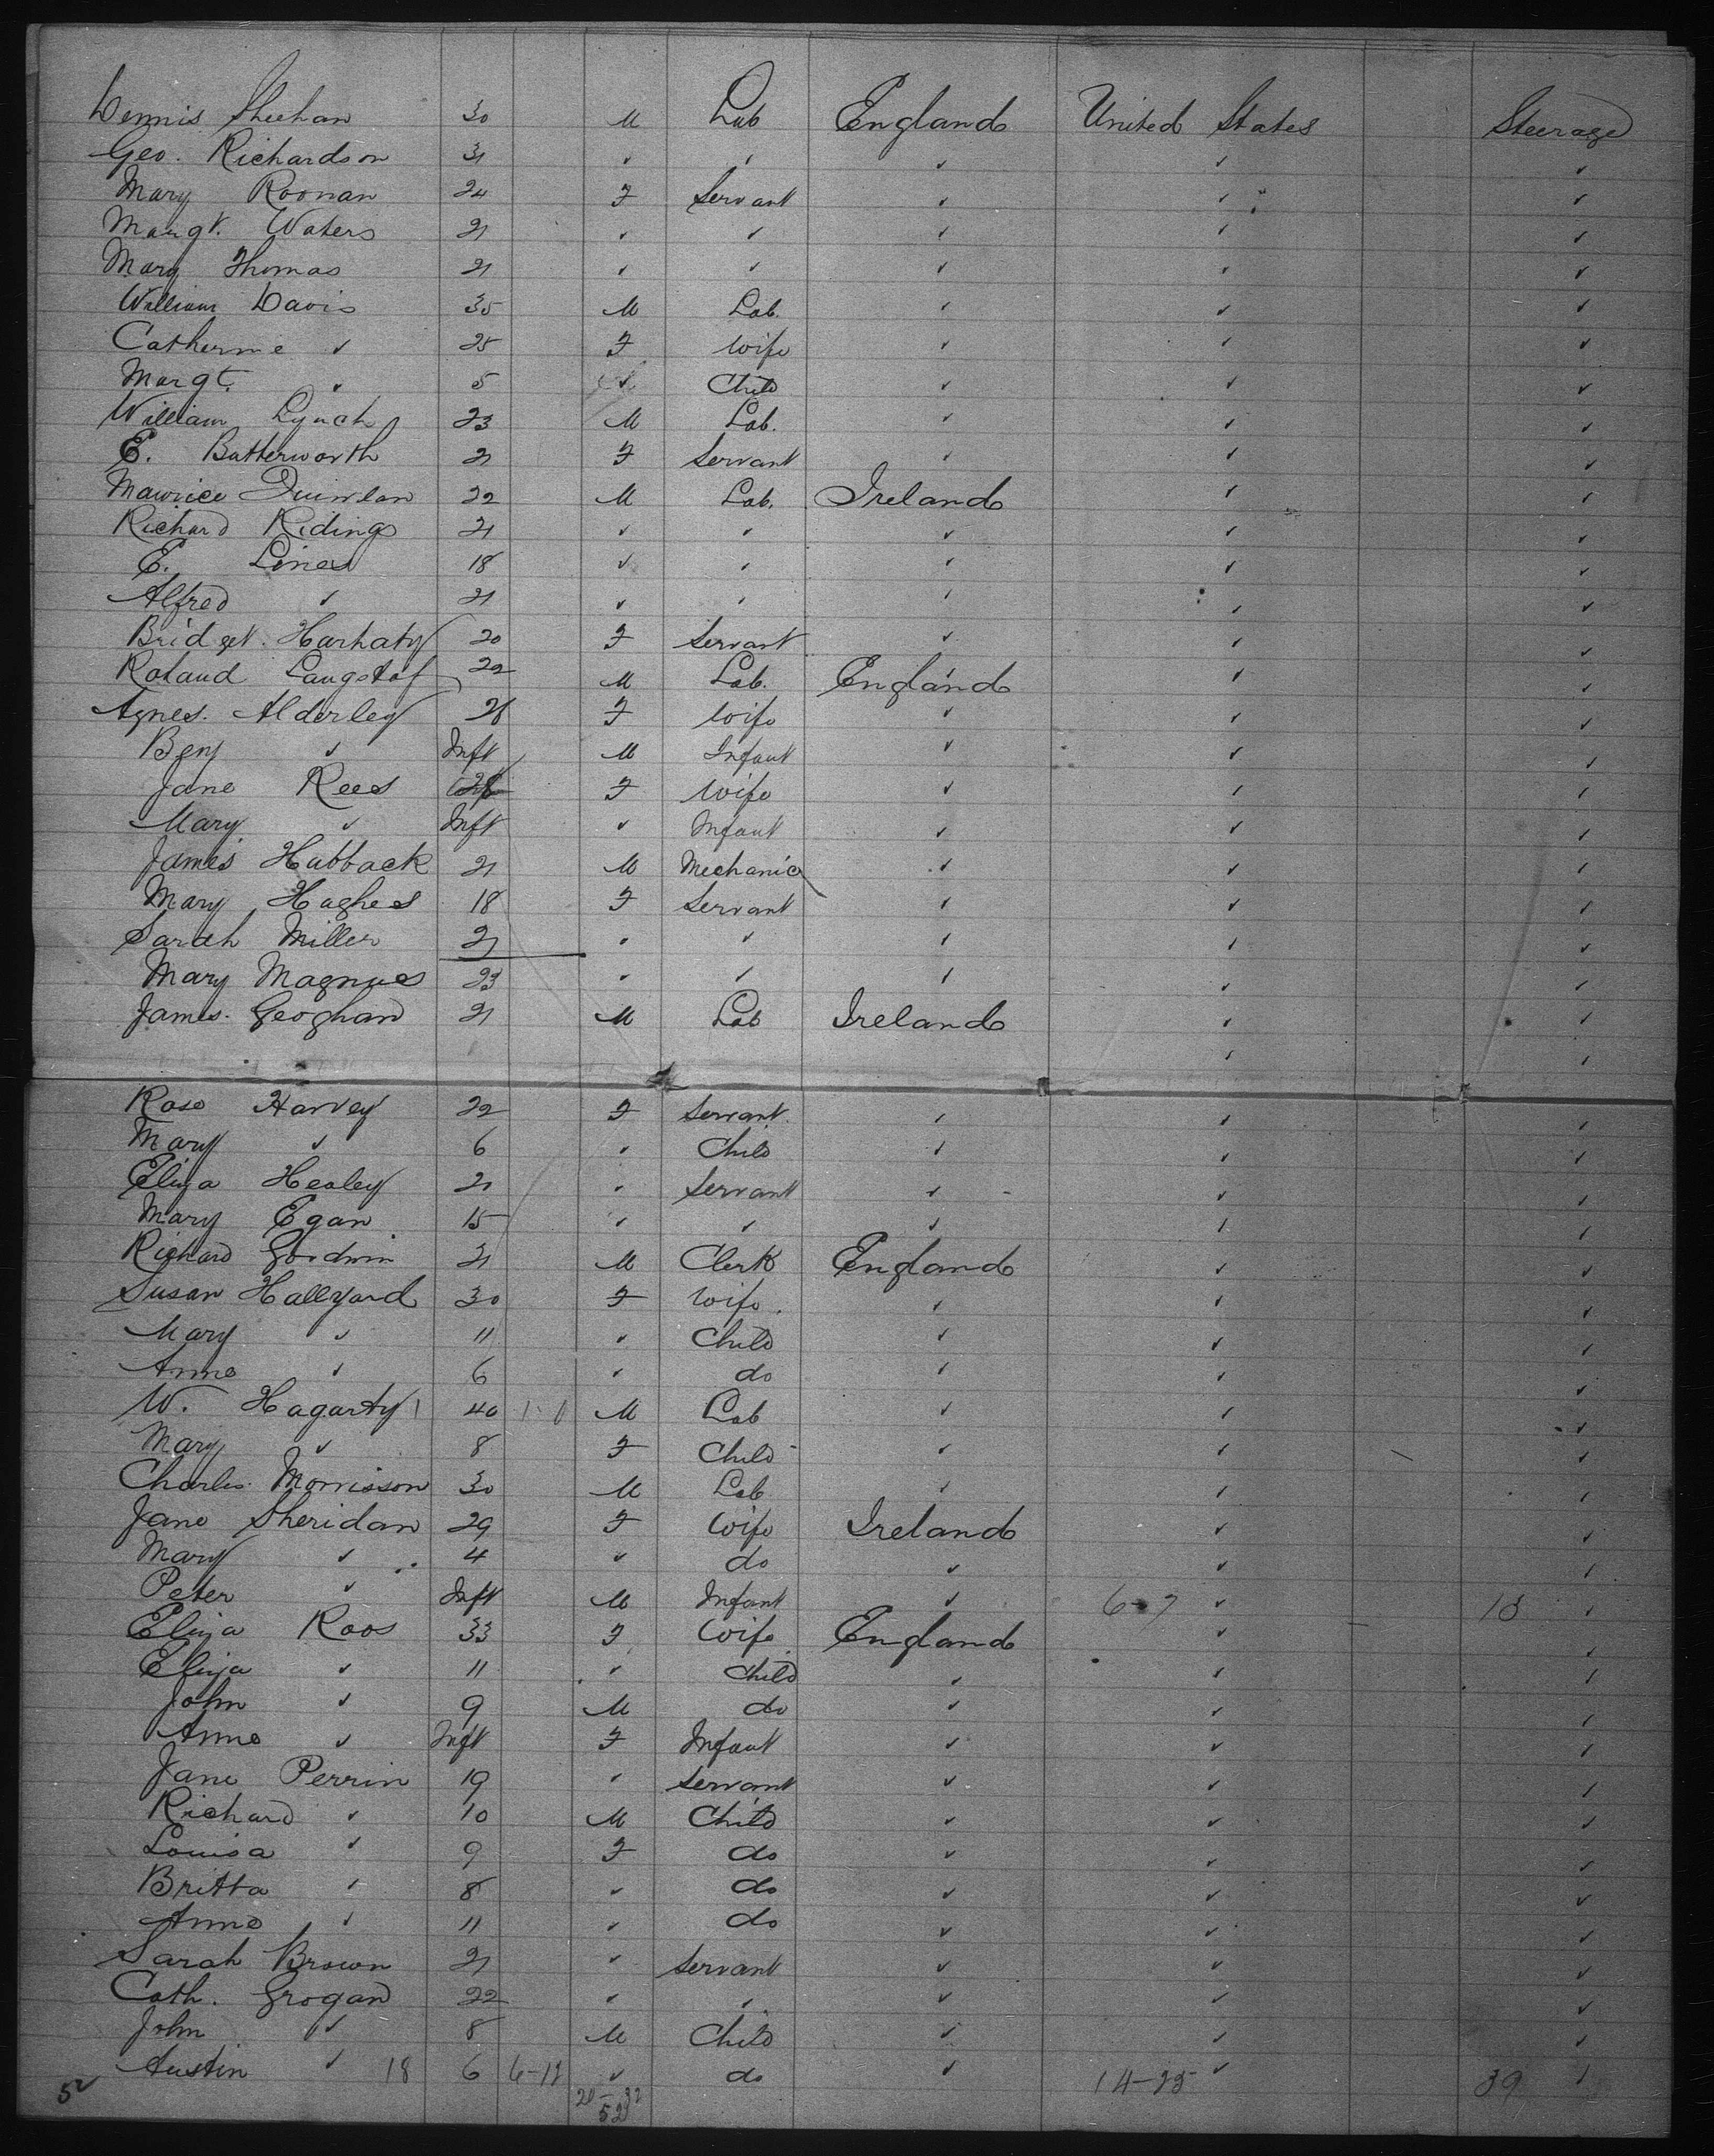 Dennis Sheehan 30 M Lab England United States Steerage
Geo. Richardson 31 " " " " "
Mary Roonan 24 F Servant " " "
Margt. Waters 21 " " " " "
Mary Thomas 21 " " " " "
William Davis 35 M Lab. " " "
Catherine " 25 F Wife " " "
Margt. " 5 " Child " " "
William Lynch 23 M Lab. " " "
E. Butterworth 21 F Servant " " "
Maurice Quinlan 22 M Lab. Ireland " "
Richard Ridings 21 " " " " "
E. Lines 18 " " " " "
Alfred " 21 " " " " "
Bridget. Harhaty 20 F Servant " " "
Roland Langstaf 22 M Lab. England " "
Agnes. Alderley 28 F Wife " " "
Benj " Inft M Infant " " "
Jane Rees 28 F Wife " " "
Mary " Inft " Infant " " "
James Habback 21 M Mechanic " " "
Mary Haghes 18 F Servant " " "
Sarah Miller 21 " " " " "
Mary Magnues 23 " " " " "
James. Geoghan 21 M Lab Ireland " "
" "
Rose Harvey 22 F Servant. " " "
Mary " 6 " Child " " "
Eliza Healey 21 " Servant " " "
Mary Egan 15 " " " " "
Richard Goodwin 21 M Clerk England " "
Susan Hallyard 30 F Wife. " " "
Mary " 11 " Child " " "
Anne " 6 " do " " "
W. Hagarty 40 M Lab " " "
Mary " 8 F Child " " "
Charles Morrisson 30 M Lab " " "
Jane Sheridan 29 F Wife Ireland " "
Mary " 4 " do " " "
Peter " Inft M Infant " 6-7 " 13 "
Eliza Roos 33 F Wife England " "
Eliza " 11 " Child " " "
John " 9 M do " " "
Anne " Inft F Infant " " "
Jane Perrin 19 " Servant " " "
Richard " 10 M Child " " "
Louisa " 9 F do " " "
Britta " 8 " do " " "
Anne " 11 " do " " "
Sarah Brown 21 " Servant " " "
Cath. Grogan 22 " " " " "
John " 8 M Child " " "
Austin " 18 6 6-12 " do " 14-25 " 39 "
52 20-32
52